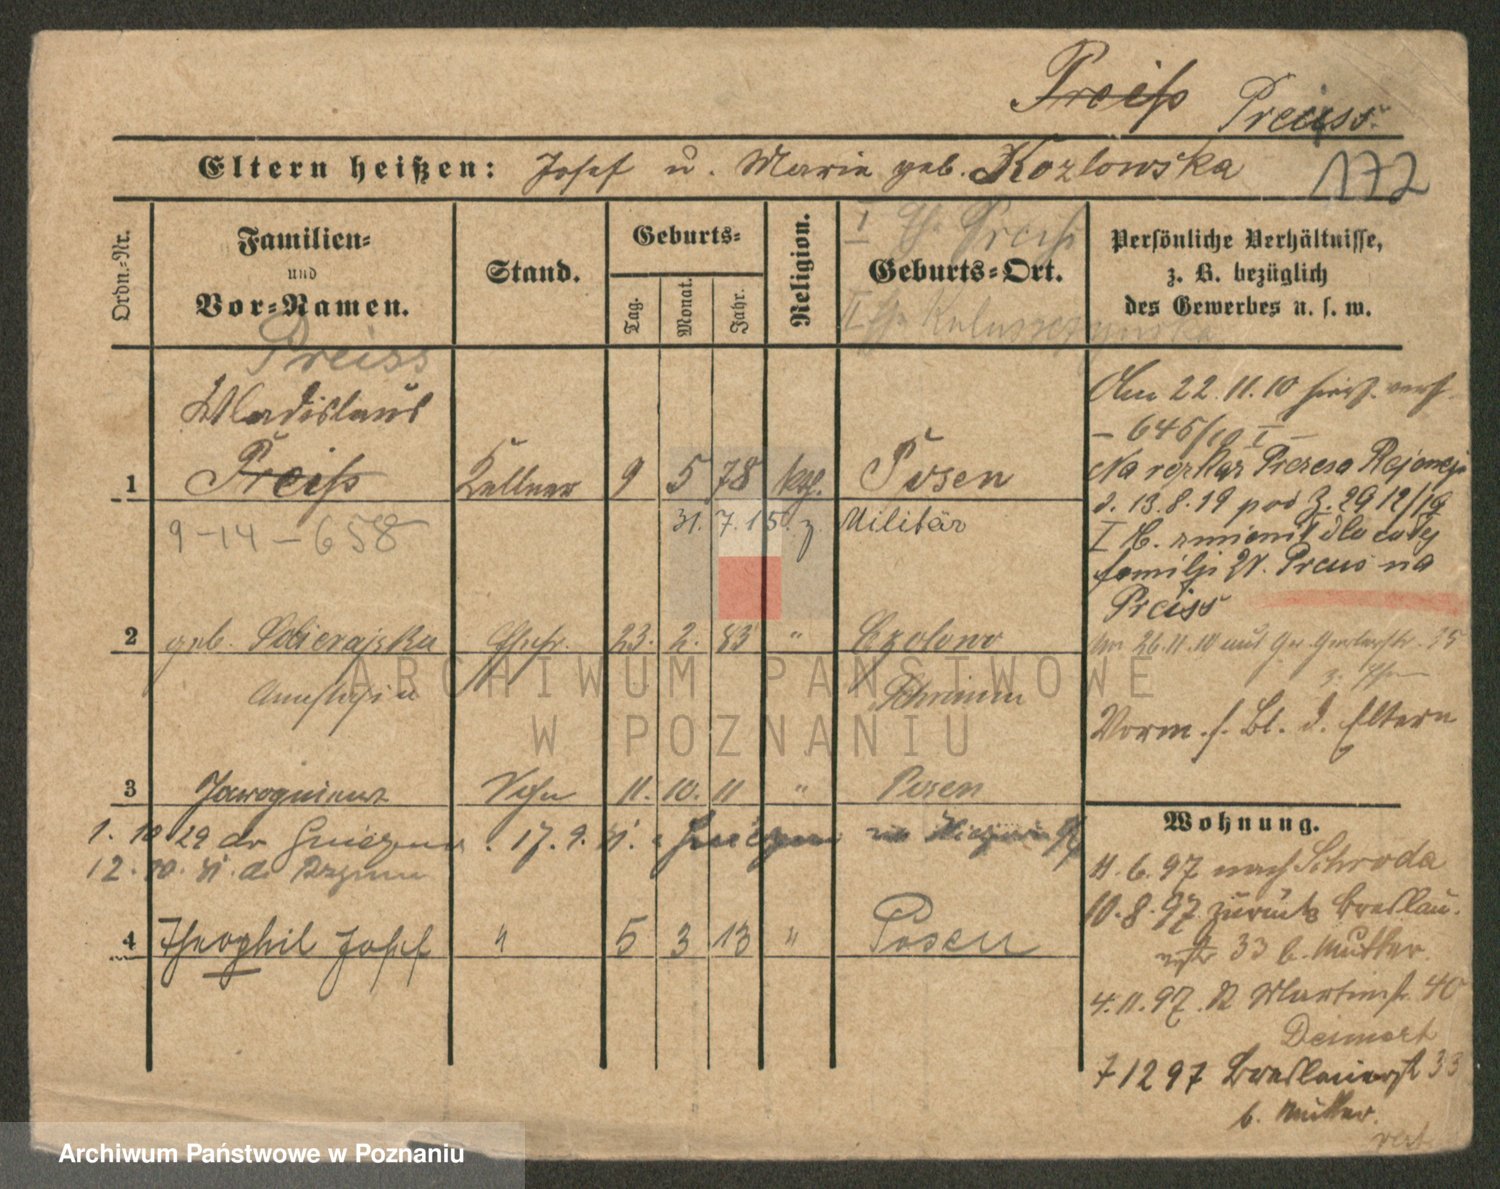 Preiß Preuss
Eltern heißen: Josef u. Marie geb. Kozlowska
172
Ordn.-Nr.
Familien-
und
Vor-Namen.
Stand.
Geburts-
Tag.
Monat.
Jahr.
Religion.
I Preiss
Geburts-Ort.
II
Persönliche Verhältnisse,
z. B. bezüglich
des Gewerbes u. s. w.
Preiss
Wladislaus
1 Preiß Kellner 9 5 78 kth. Posen
9-14-658
31.7.15. z Militär
2 geb. Sobierajska Ehefr. 23. 2. 83 " 
Schrimm
3 Jarogniew Sohn 11. 10. 11 " Posen
1. 10 29 do Gniezna . 17. 9. 31.
12. 10. 31. do
4 Theophil Josef " 5 3 13 " Posen
Am 22.11.10 verh.
- 645/10 I -
Na rozkaz Prezesa Rejencji
d. 13.8.19 pod Z. 2912/19
I B. zmienił dla całej
familji W. Preus na
Preiss
26.11.10 aus
Vorm. s. Bl. d. Eltern
Wohnung.
11.6.97 nach Schroda
10.8.97 zurück Breslau.
33 b. Mutter.
4.11.97. St Martinstr. 40
7 12 97 Breslauerst 33
b. Mutter.
ARCHIWUM PAŃSTWOWE
W POZNANIU
Archiwum Państwowe w Poznaniu